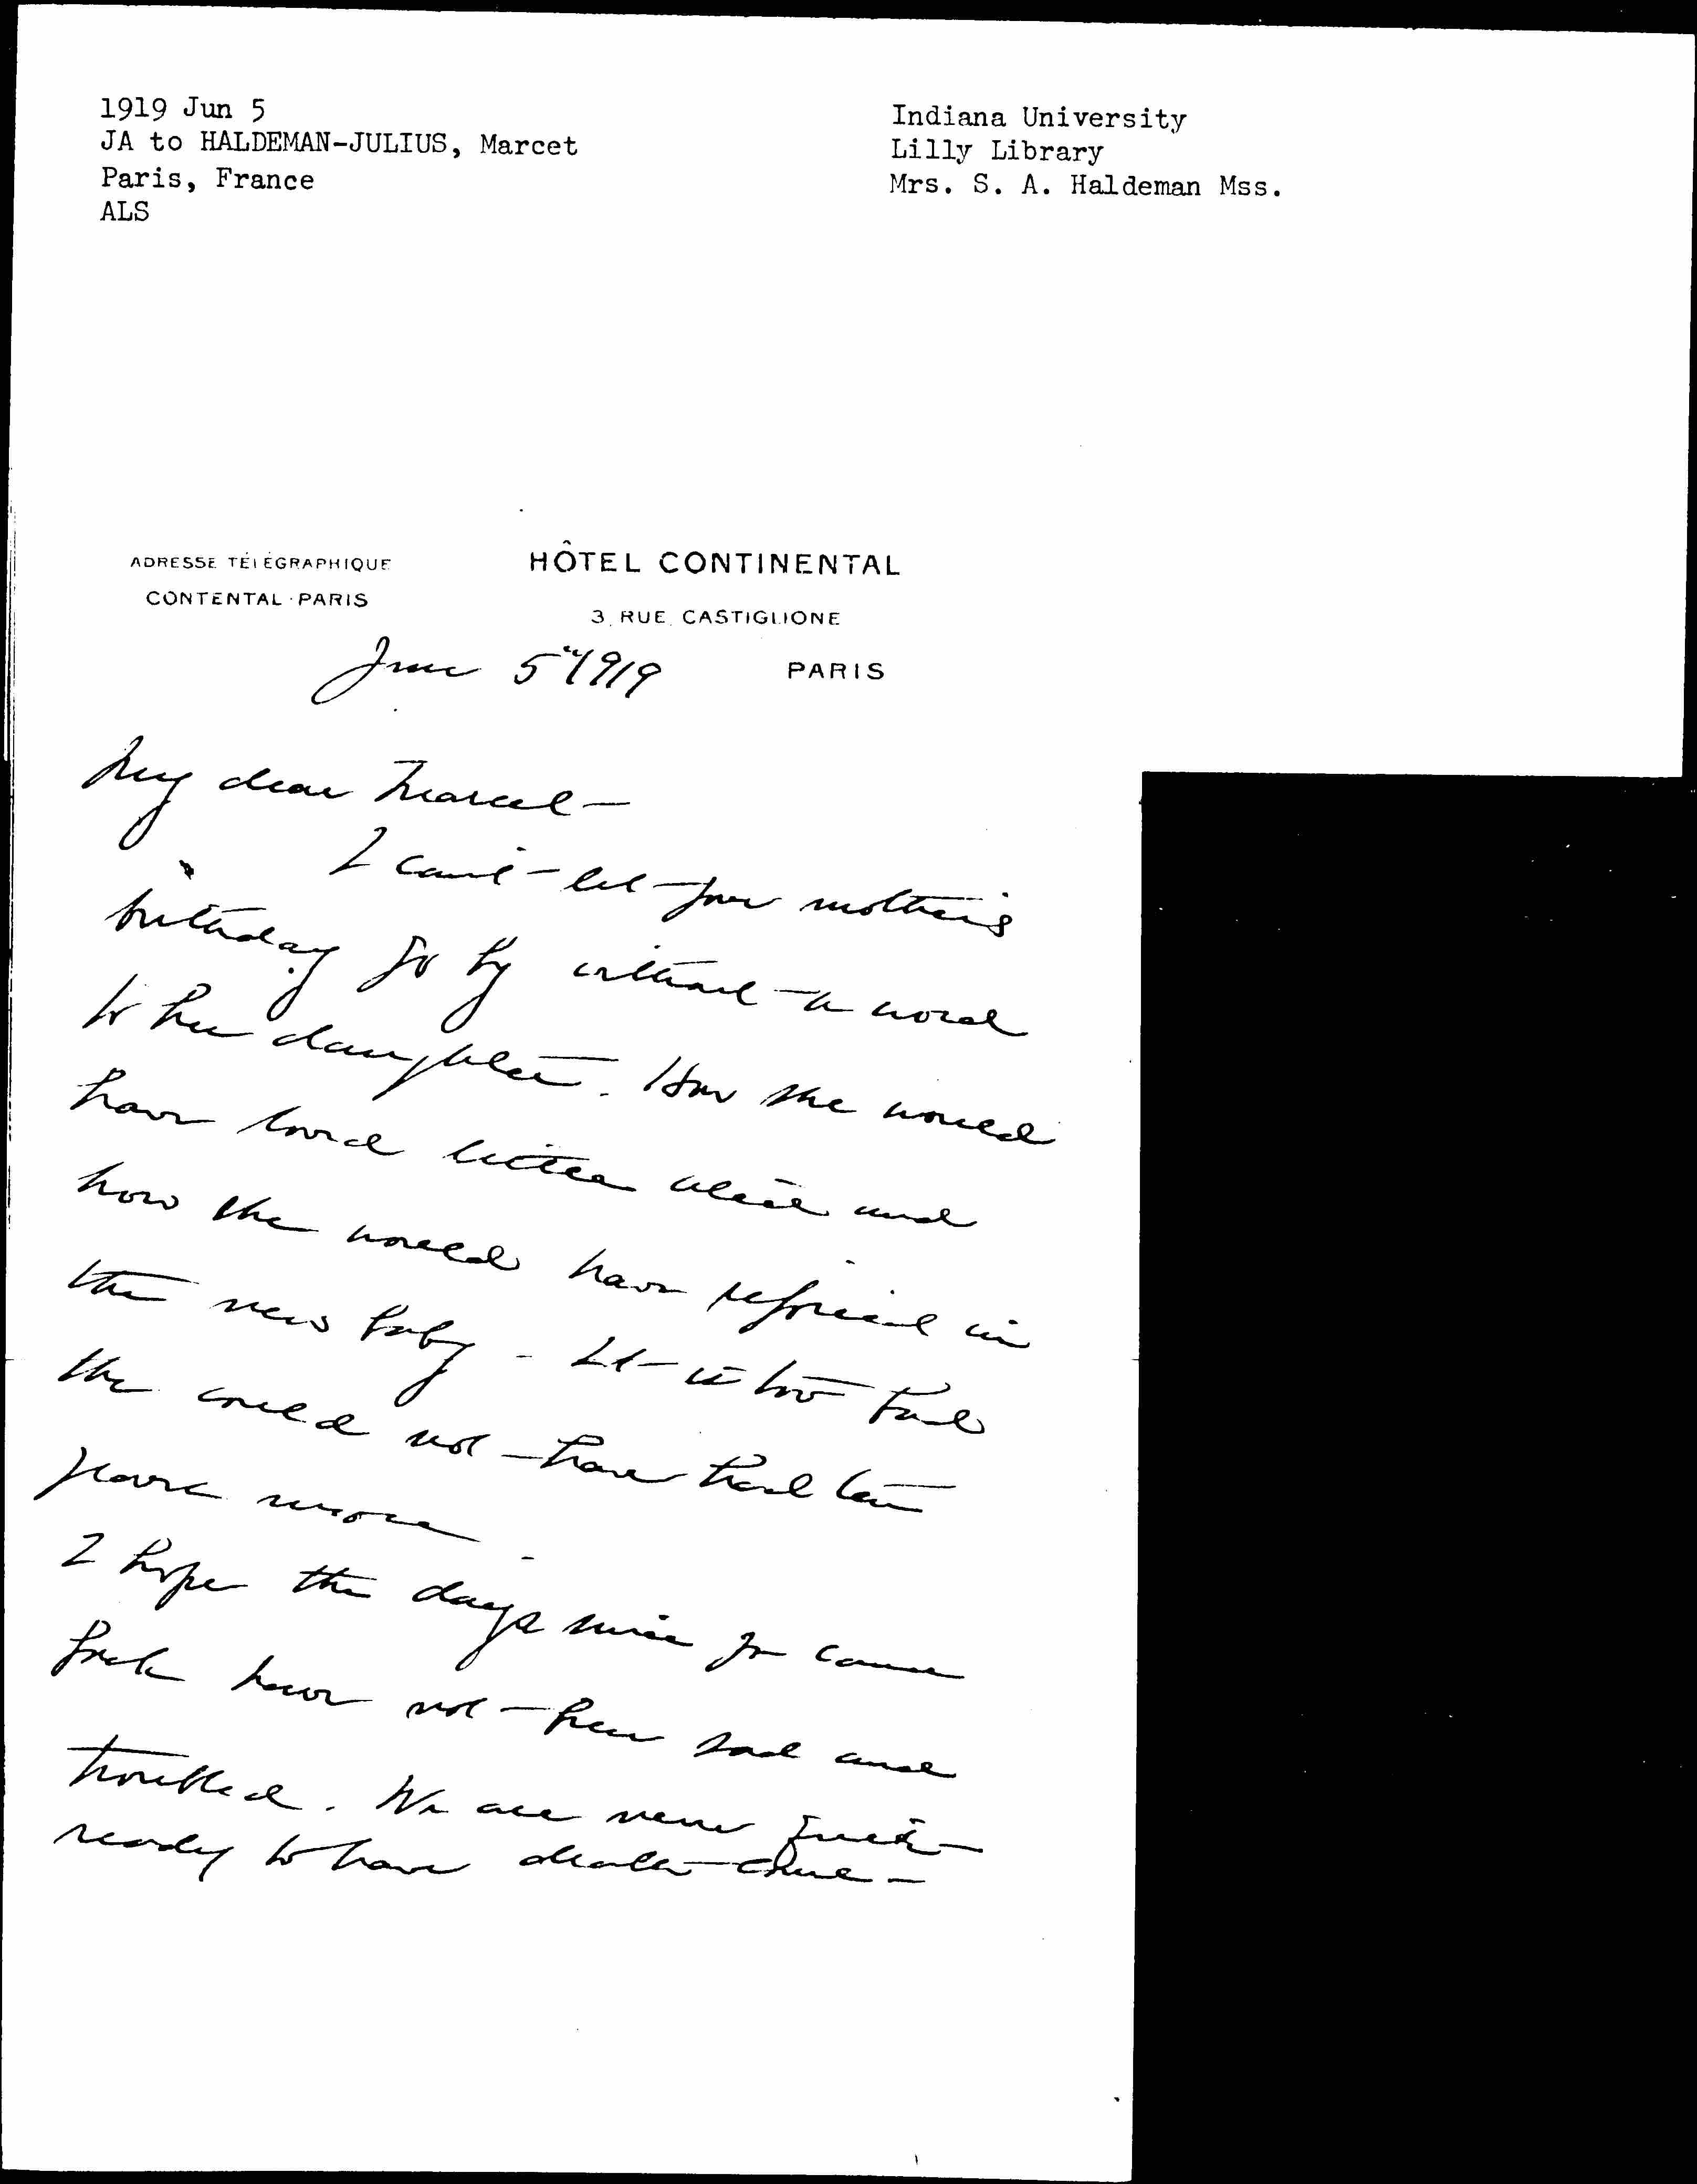 1919 Jun 5
JA to HALDEMAN-JULIUS, Marcet
Paris, France
ALS
Indiana University
Lilly Library
Mrs. S. A. Haldeman Mss.
ADRESSE TÉLÉGRAPHIQUE
CONTENTAL·PARIS
HÔTEL CONTINENTAL
3, RUE CASTIGLIONE
PARIS
June 5" 1919
My dear Marcet —
I can't let your mother's
birthday go by without a word
to her daughter. How she would
have loved little Alice and
how she would have rejoiced in
the new baby – It is too bad
she could not have had ten
years more.
I hope the days since you came
back have not been sad and
troubled. We are never quite
ready to have death come –